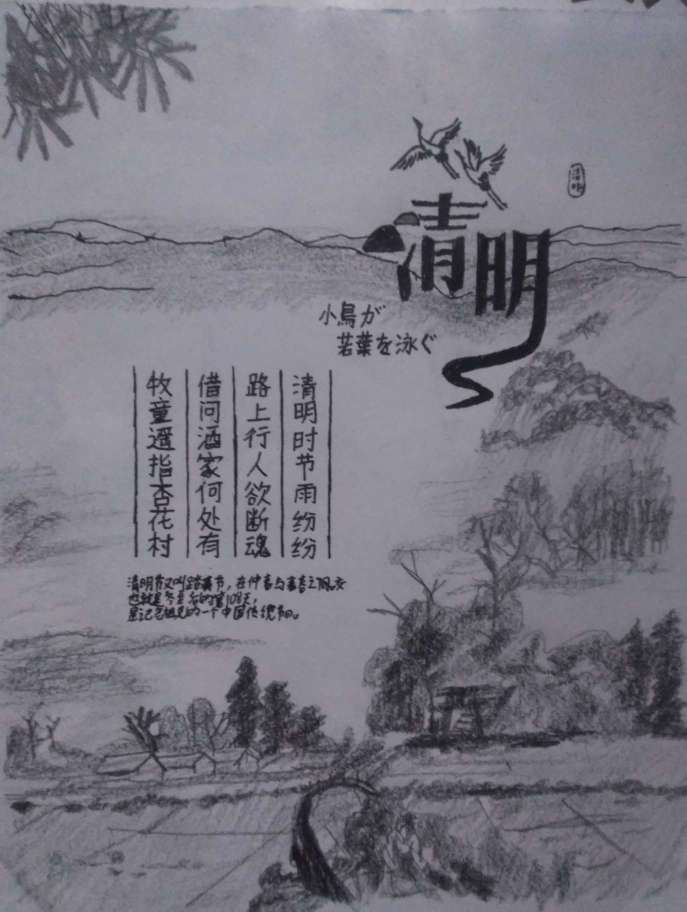 清明
清明
小鳥が
若葉を泳ぐ
清明时节雨纷纷
路上行人欲断魂
借问酒家何处有
牧童遥指杏花村
清明节又叫踏青节，在仲春与暮春之际，
也就是冬至后的第108天，
是一个中国传统节日。